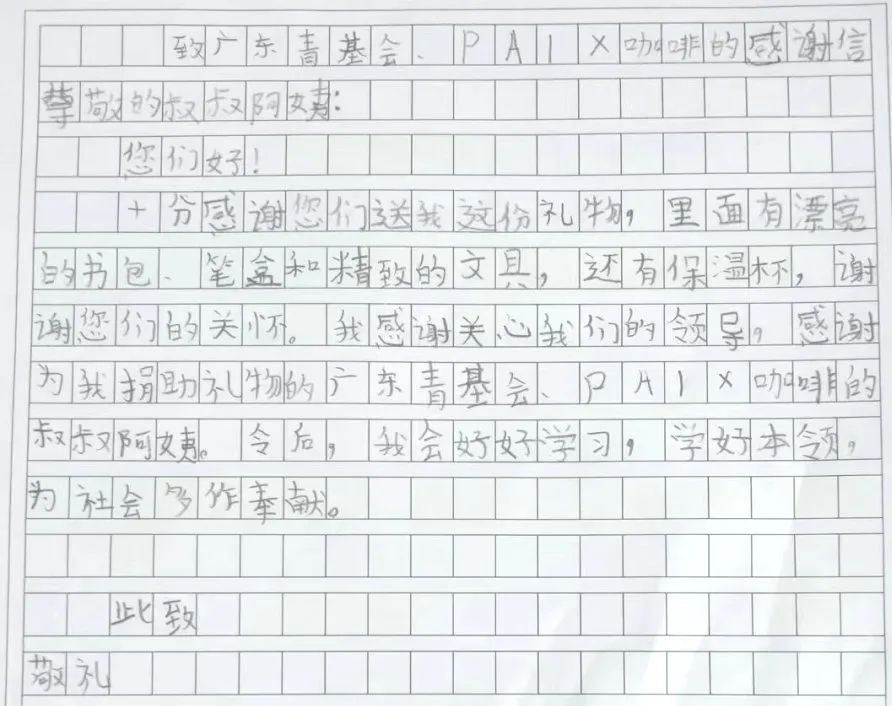 致广东青基会、PAIX咖啡的感谢信
尊敬的叔叔阿姨:
您们好!
十分感谢您们送我这份礼物,里面有漂亮
的书包、笔盒和精致的文具,还有保温杯,谢
谢您们的关怀。我感谢关心我们的领导,感谢
为我捐助礼物的广东青基会、PAIX咖啡的
叔叔阿姨。令后,我会好好学习,学好本领,
为社会多作奉献。
此致
敬礼